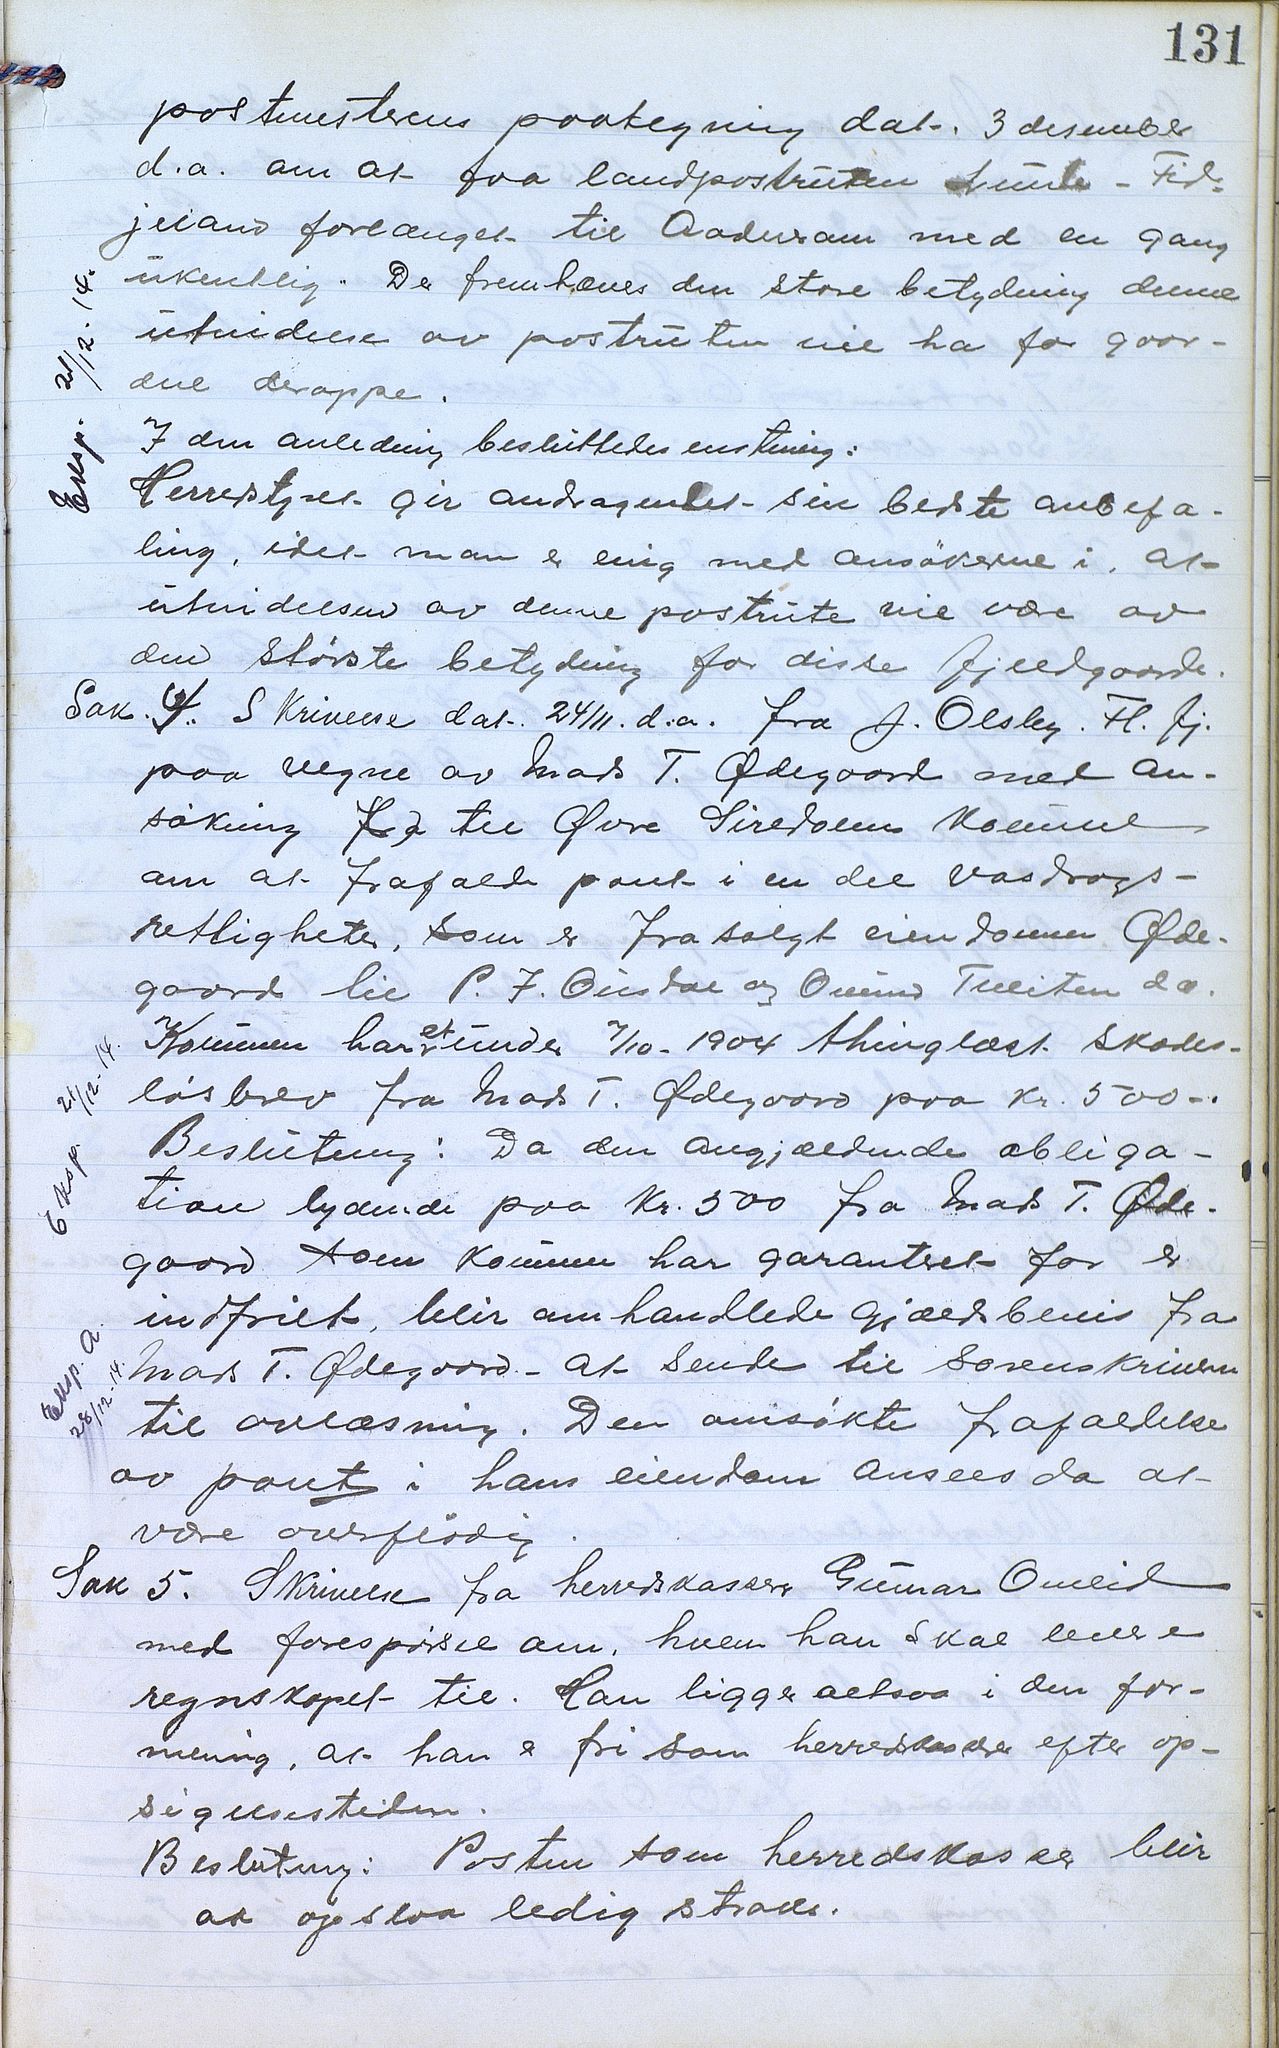 131
postmesterens paategning dat. 3 desember
d.a. om at faa landpostruten Lunde - Fid-
jeland forlænget til Aadneram med en gang
ukentlig. Der fremhæves den store betydning denne
utvidelse av postruten vil ha for gaar-
dene deroppe.
I den anledning besluttedes enstemig:
Herredstyret gir andragendet sin bedste anbefa-
ling, idet man er enig med ansökerne i, at
utvidelsen av denne postrute vil være av
den störste betydning for disse fjeldgaarde.
Eksp. 21/12. 14.
Sak. 4. Skrivelse dat. 24/11. d.a. fra J. Olsby. Fl. fj.
paa vegne av Mads T. Ødegaard med an-
sökning til Øvre Siredalens kommune
om at frafalde pant i en del vasdrags-
rettigheter, som er frasolgt eiendommen Øde-
gaard til P. J. Ousdal og Ommund Tveiten da.
Kommunen har et under 7/10-1904 thinglæst skades-
lösbrev fra Mads T. Ødegaard paa kr. 500-.
Eksp. 21/12-14.
Beslutning: Da den angjældende obliga-
tion lydende paa kr. 500 fra Mads T. Øde-
gaard som kommunen har garanteret for er
indfriet, blir omhandlede gjældsbevis fra
Mads T. Ødegaard - at sende til sorenskriveren
til avlæsning. Den omsökte frafaldelse
av pant i hans eiendom ansees da at
være overflödig.
Eksp. a. 28/12-14.
Sak 5. Skrivelse fra herredskasserer Gunnar Omlid
med forespörsel om, hvem han skal levere
regnskapet til. Han ligger altsaa i den for-
mening, at han er fri som herredskasserer efter op-
sigelsestiden.
Beslutning: Posten som herredskasserer blir
at opslaa ledig straks.